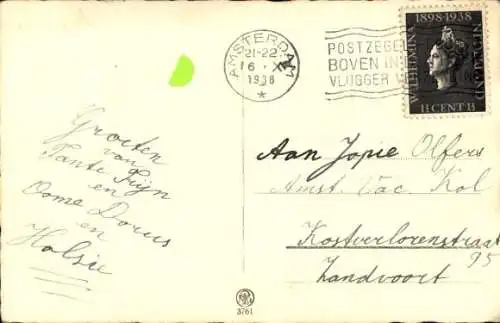 AMSTERDAM
21-22
16 X
1938
POSTZEGEL
BOVEN IN
VLUGGER
1898-1938
WILHELMINA
NEDERLAND
1½ CENT 1½
Groeten
van
Tante Fijn
en
Oome Dorus
en
Halsie
Aan Jopie Olfers
Amst. Vac. Kol
Kostverlorenstraat
95
Zandvoort
3761